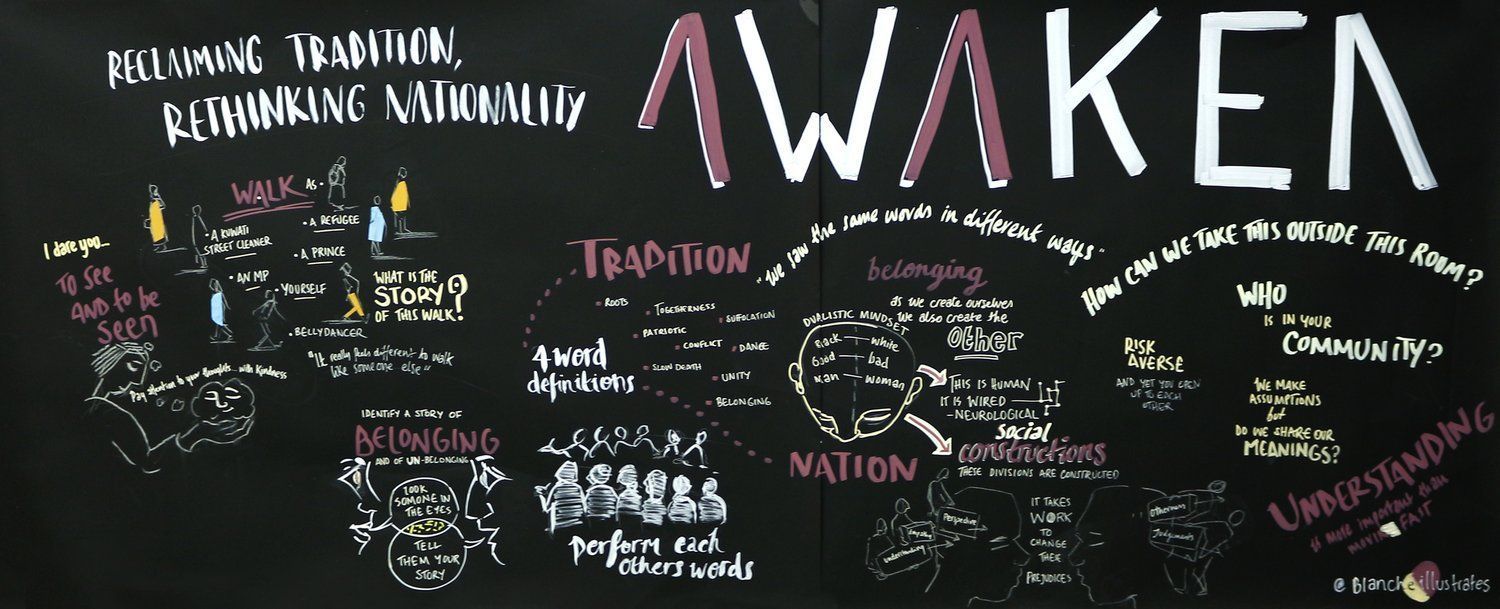 RECLAIMING TRADITION,
RETHINKING NATIONALITY
AWAKEN
WALK AS•
• A REFUGEE
• A KUWATI
STREET CLEANER
• A PRINCE
• AN MP
• YOURSELF
• BELLYDANCER
I dare you...
TO see
AND to be
seen
WHAT IS THE
STORY?
OF THIS WALK?
"It really feels different to walk
like someone else"
Pay attention to your thoughts... with kindness
IDENTIFY A STORY OF
BELONGING
AND OF UN-BELONGING
LOOK
SOMONE IN
THE EYES
TELL
THEM YOUR
STORY
TRADITION
• ROOTS
• TOGETHERNESS
• SUFFOCATION
PATRIOTIC
• CONFLICT
• DANCE
• SLOW DEATH
• UNITY
• BELONGING
4 word
definitions
NATION
perform each
others words
"We saw the same words in different ways"
belonging
as we create ourselves
we also create the
other
DUALISTIC MINDSET
Black white
Good bad
Man woman
THIS IS HUMAN
IT IS WIRED
- NEUROLOGICAL
social
constructions
THESE DIVISIONS ARE CONSTRUCTED
Perspective
Empathy
Understanding
IT TAKES
WORK
TO
CHANGE
THEIR
PREJUDICES
Judgements
HOW CAN WE TAKE THIS OUTSIDE THIS ROOM?
WHO
IS IN YOUR
COMMUNITY?
RISK
AVERSE
AND YET YOU OPEN
UP TO EACH
OTHER
WE MAKE
ASSUMPTIONS
but
DO WE SHARE OUR
MEANINGS?
UNDERSTANDING
is more important than
moving FAST
@Blancheillustrates